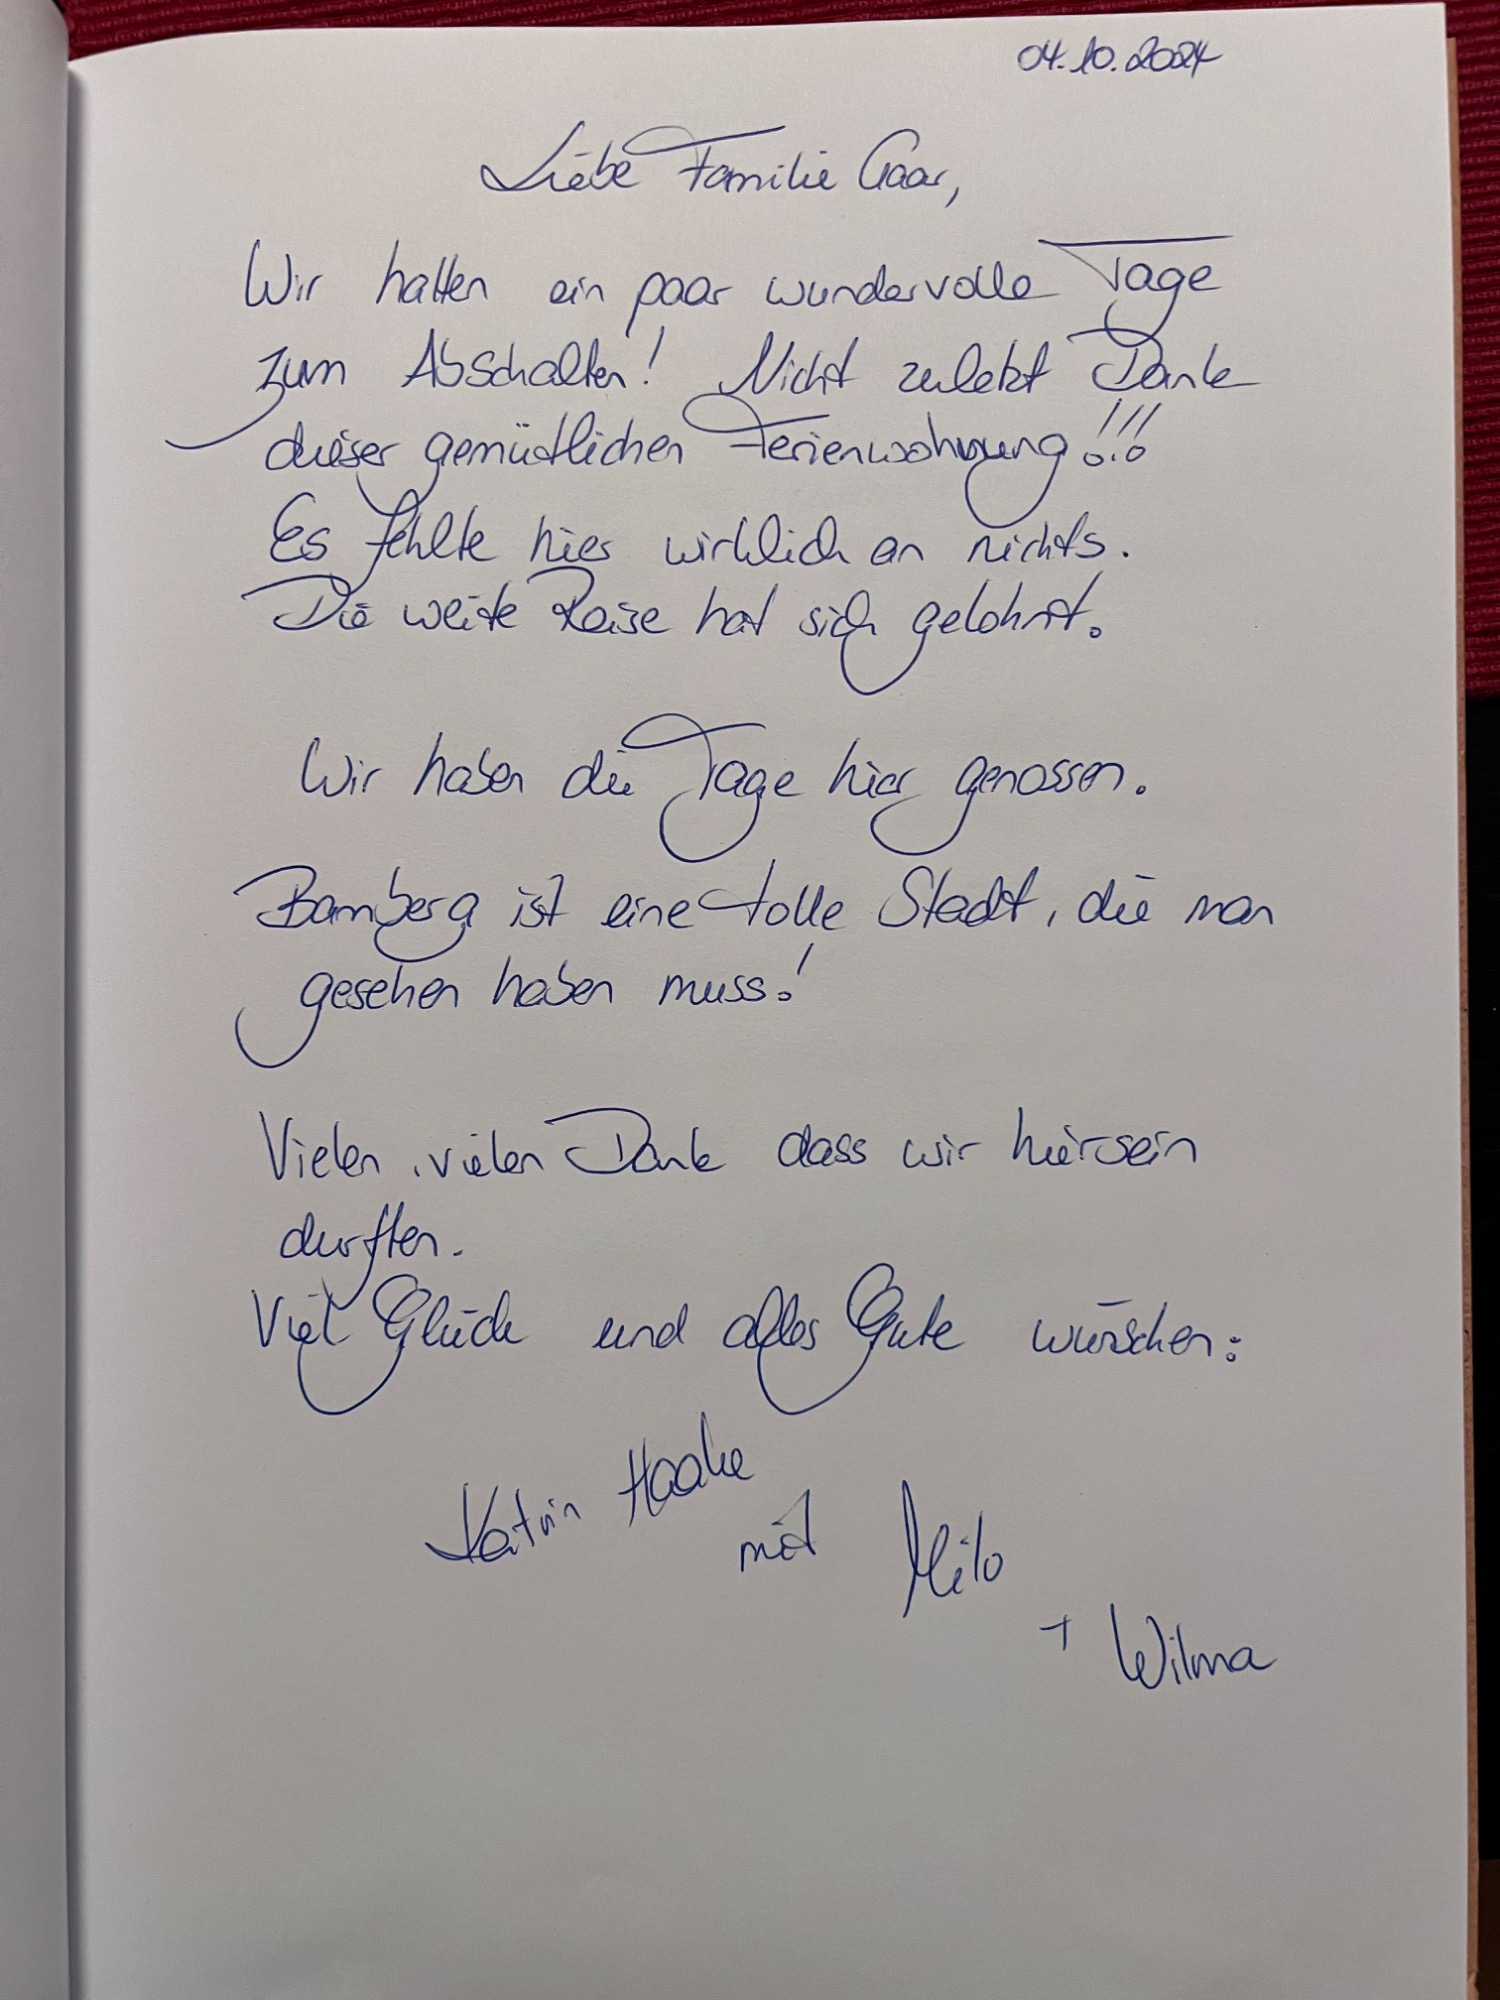 04.10.2024
Liebe Familie Gaar,
Wir hatten ein paar wundervolle Tage
zum Abschalten! Nicht zuletzt Dank
dieser gemütlichen Ferienwohnung!!!
Es fehlte hier wirklich an nichts.
Die weite Reise hat sich gelohnt.
Wir haben die Tage hier genossen.
Bamberg ist eine tolle Stadt, die man
gesehen haben muss!
Vielen, vielen Dank dass wir hier sein
durften.
Viel Glück und alles Gute wünschen:
Katrin Haake
mit Milo
+ Wilma